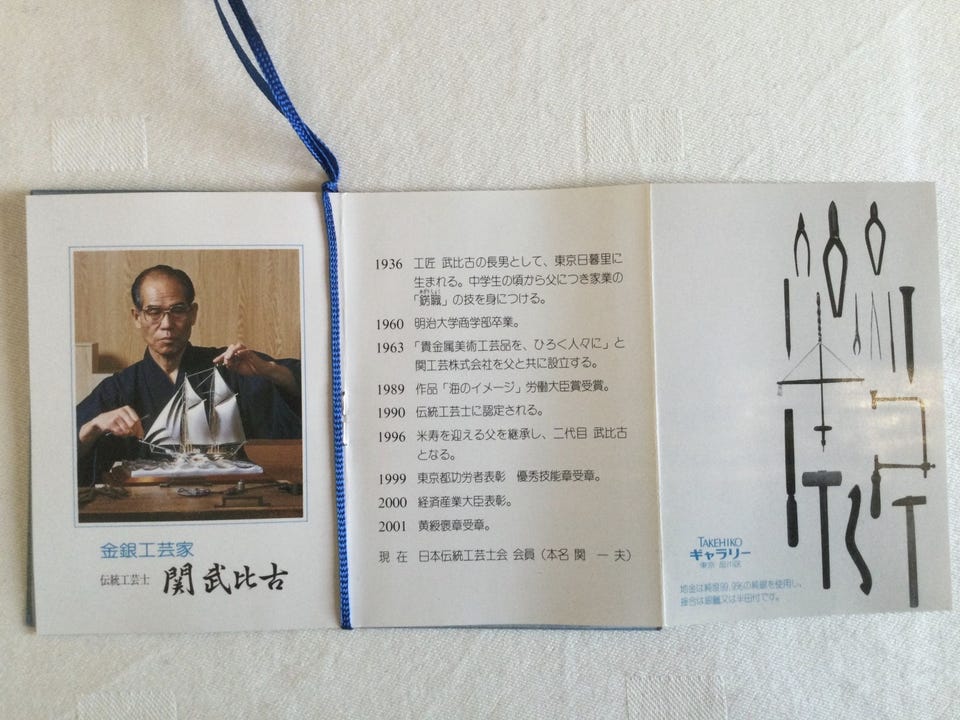 金銀工芸家
伝統工芸士 関 武比古
1936 工匠 武比古の長男として、東京日暮里に
生まれる。中学生の頃から父につき家業の
「錺職」の技を身につける。
1960 明治大学商学部卒業。
1963 「貴金属美術工芸品を、ひろく人々に」と
関工芸株式会社を父と共に設立する。
1989 作品「海のイメージ」労働大臣賞受賞。
1990 伝統工芸士に認定される。
1996 米寿を迎える父を継承し、二代目 武比古
となる。
1999 東京都功労者表彰 優秀技能章受章。
2000 経済産業大臣表彰。
2001 黄綬褒章受章。
現 在 日本伝統工芸士会 会員（本名 関 一 夫）
TAKEHIKO
ギャラリー
東京 品川区
地金は純度99.9%の純銀を使用し、
接合は銀鑞又は半田付です。